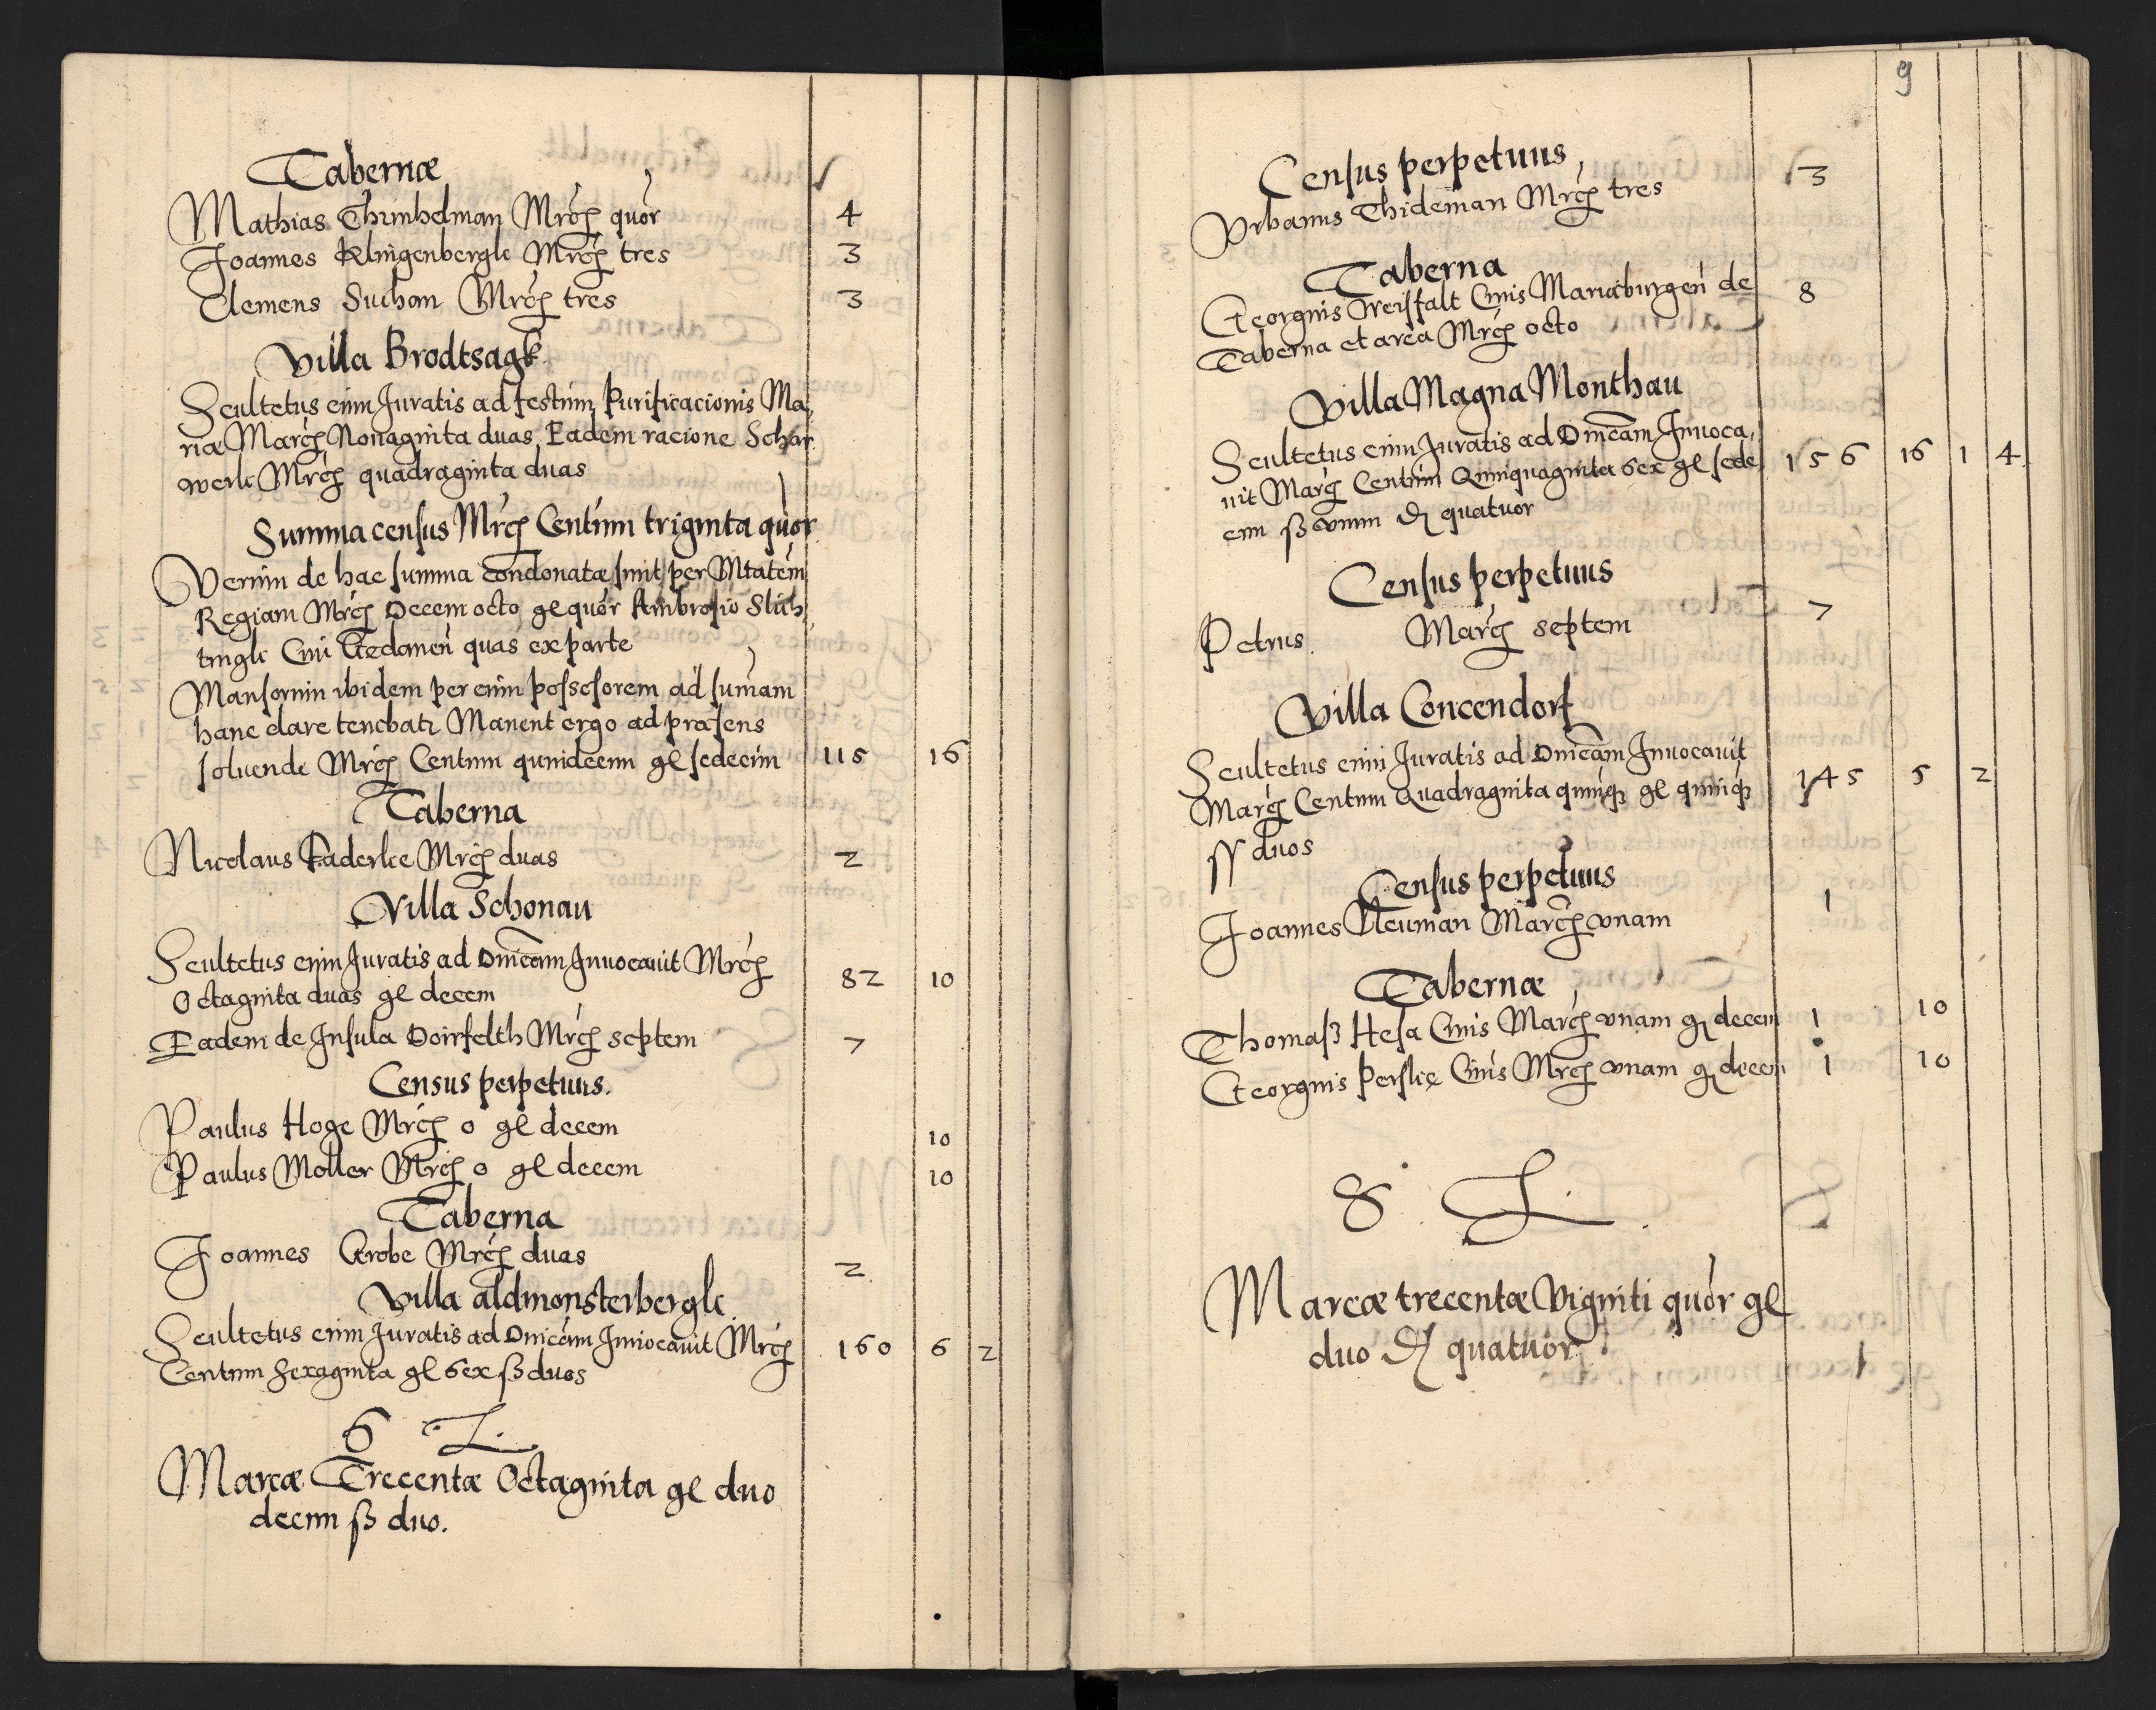 Tabernæ
Mathias Thimhelman Mrcȝ quor 4
Joannes Klingenbergk Mrcȝ tres 3
Clemens Suchan Mrcȝ tres 3
Villa Brodtsagk
Scultetus cum Juratis ad festum Purificacionis Ma,
riæ Marcȝ Nonaginta duas, Eadem racione Schar
werk Mrcȝ quadraginta duas
Summa census Mrcȝ Centum triginta quor
Verum de hac summa condonatæ sunt per Mtatem
Regiam Mrcȝ Decem octo, gl quor Ambrosio
Civi Gedanen quas ex parte
Mansorum ibidem per eum possessorem ad sumam
hanc dare tenebatr Manent ergo ad præsens
solvende Mrcȝ Centum quindecim gl sedecim 115 16
Taberna
Nicolaus Faderke Mrcȝ duas 2
Villa Schonau
Scultetus cum Juratis ad Dnicam Invocavit Mrcȝ
Octaginta duas gl decem 82 10
Eadem de Insula Doirfelth Mrcȝ septem 7
Census perpetuus.
Paulus Hoge Mrcȝ 0 gl decem 10
Paulus Moller Mrcȝ 0 gl decem 10
Taberna
Joannes Grobe Mrcȝ duas 2
Villa aldmonsterbergk
Scultetus cum Juratis ad Dnicam Invocavit Mrcȝ 160 6 2
Centum sexaginta gl sex ß duos
6 L.
Marcæ Trecentæ Octaginta gl duo
decim ß duo.
9
Census perpetuus
Vrbanus Thideman Mrcȝ tres 3
Taberna
Georgius Treisfalt Civis Mariæburgen de 8
Taberna et area Mrcȝ octo
Villa Magna Monthau
Scultetus cum Juratis ad Dnicam Invoca,
vit Marcȝ Centum Quinquaginta sex gl sede 156 16 1 4
cim ß vnum ₰ quatuor
Census perpetuus
Petrus Marcȝ septem 7
Villa Concendorf
Scultetus cum Juratis ad Dnicam Invocavit
Marcȝ Centum Quadraginta quinqȝ gl quinqȝ 145 5 2
ß duos
Census perpetuus
Joannes Neuman Marcȝ vnam 1
Tabernæ
Thomaß Hesa Civis Marcȝ vnam g decem 1 10
Georgius Perslie Civis Mrcȝ vnam g decem 1 10
8 L.
Marcæ trecentæ Viginti quor gl
duo ₰ quatuor